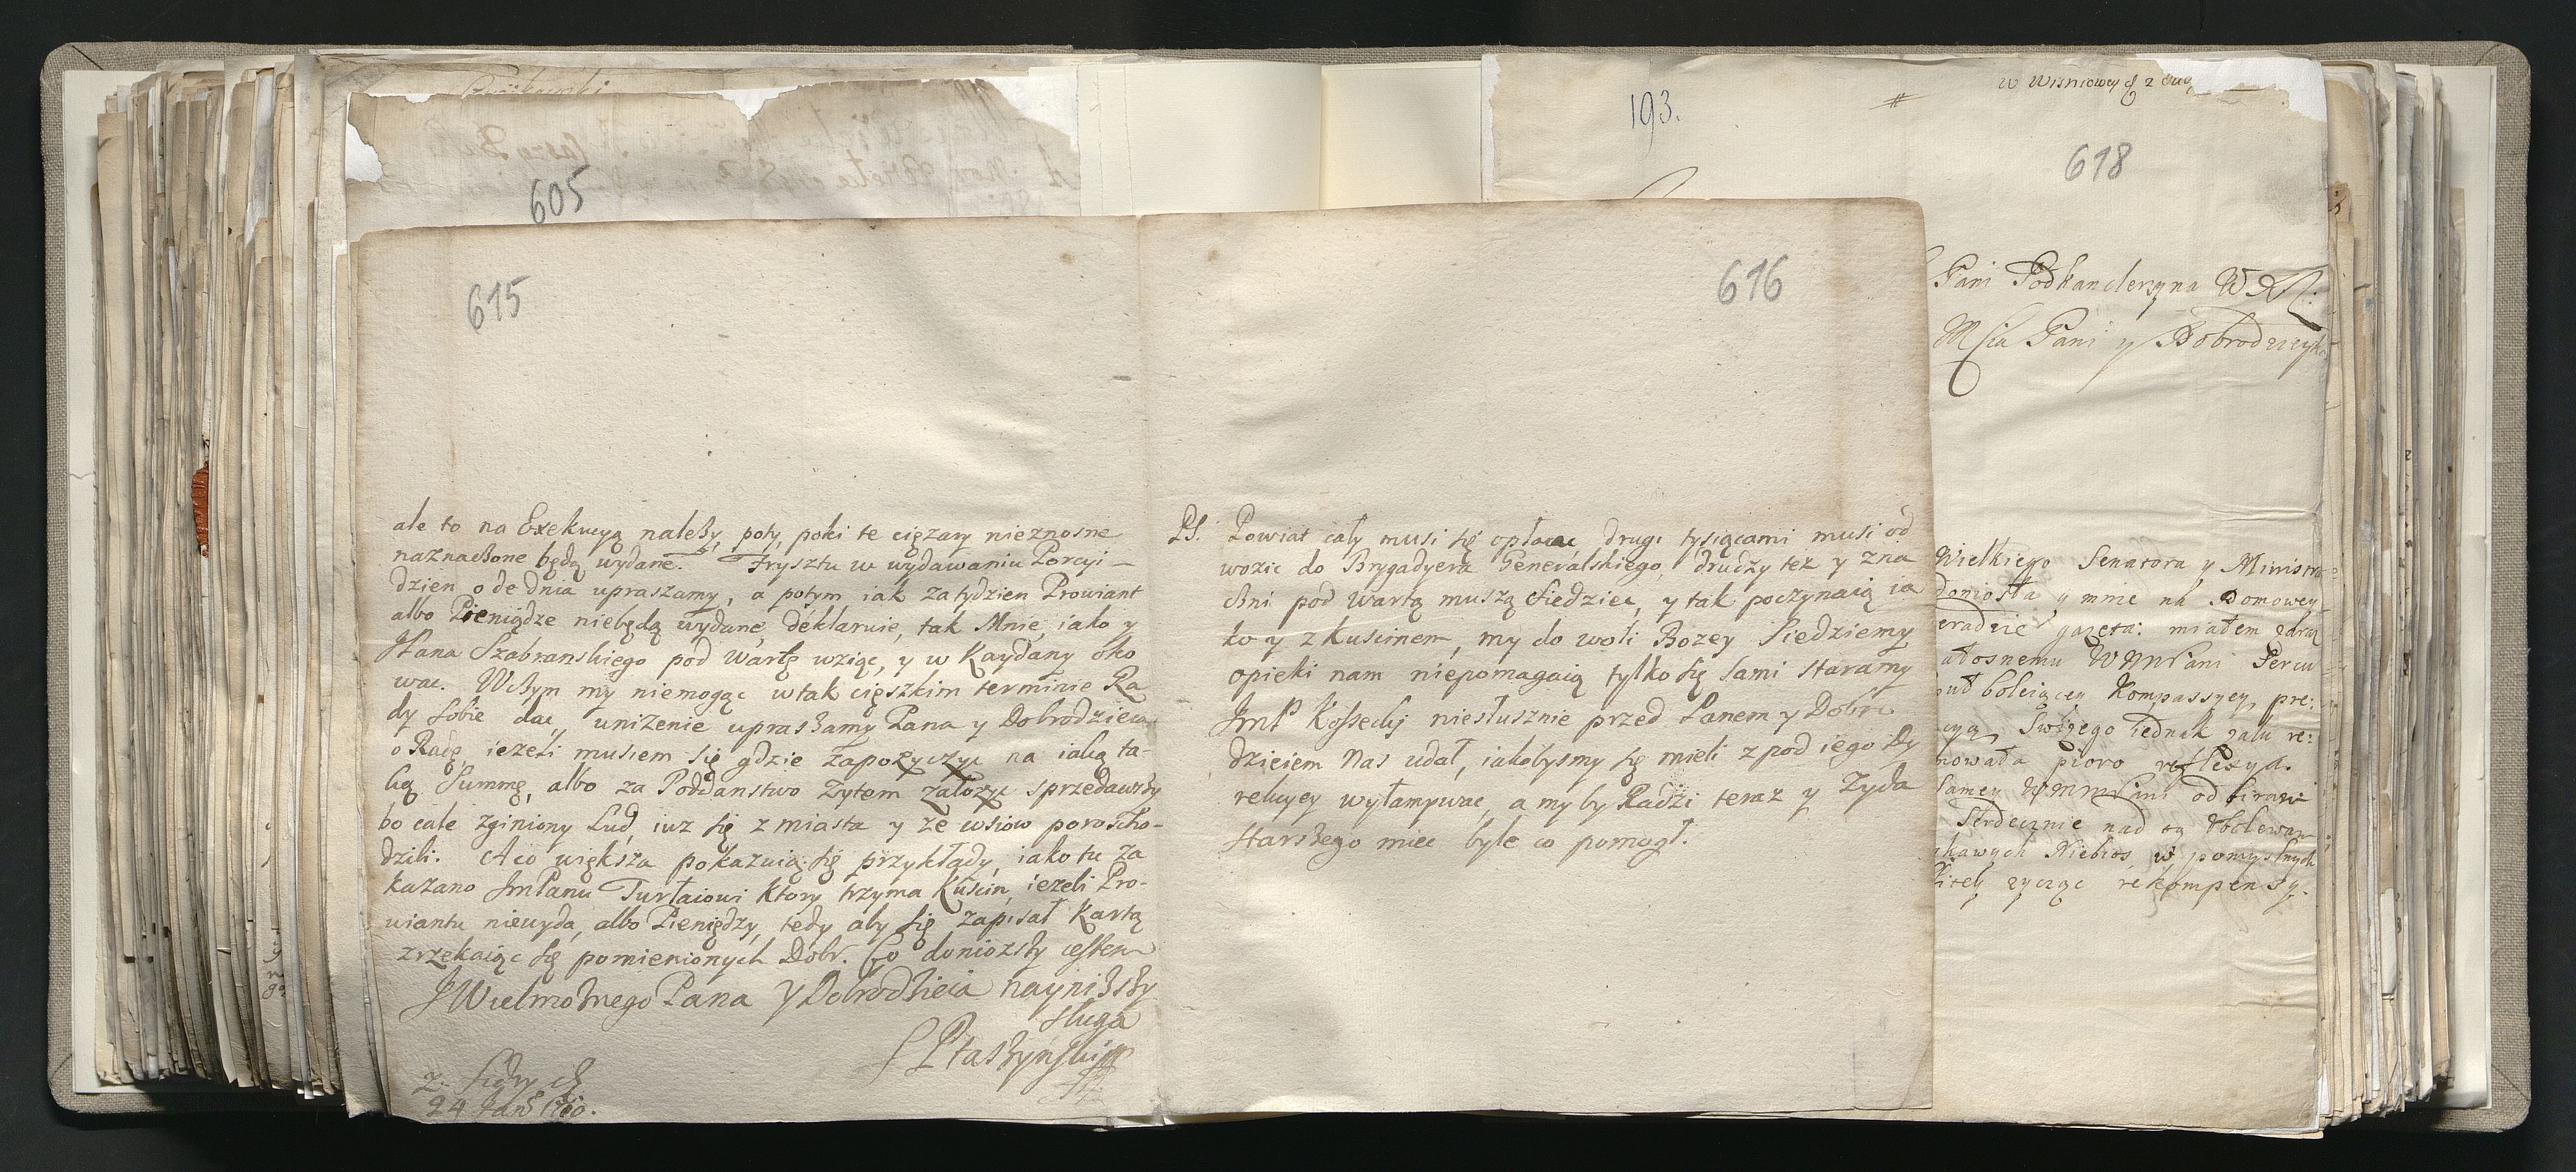 605
615
ale to na Exekucyą należy, poty, poki te ciężary nieznosne
naznaczone będą wydane. Frysztu w wydawaniu Porcyi
dzien ode dnia upraszamy, a potym iak za tydzien Prowiant
albo Pieniądze niebędą wydane, deklaruie, tak Mnie, iako y
Pana Szabranskiego pod Wartę wziąc, y w Kaydany oko
wac. W czym my niemogąc w tak cięszkim terminie Ra
dy sobie dac, uniżenie upraszamy Pana y Dobrodzieia
o Radę, ieżeli musiem się gdzie zapożyczyc na iaką ta-
ką Summę, albo za Poddanstwo Zytem założyc sprzedawszy
bo cale zginiony Lud, iuz się z miasta y ze wsiow porozcho-
dzili. A co większa pokazuią się przykłady, iako tu za
kazano Jm Panu Turłaiowi ktory trzyma Kuscin, ieżeli Pro-
wiantu niewyda, albo Pieniędzy, tedy aby się zapisał Kartą
zrzekaiąc się pomienionych Dobr. Co doniozszy iestem
JWielmożnego Pana y Dobrodzieia nayniższy
sługa
Ptaszynski
24 Jan
616
PS. Powiat cały musi się opłacac drugi tysiącami musi od
wozic do Brygadyera Generalskiego, drudzy też y zna
czni pod wartą muszą siedziec, y tak poczynaią ia
ko y z Kuscinem, my do woli Bozey siedziemy
opieki nam niepomagaią tylko się sami staramy
JmP Kossecky niesłusznie przed Panem y Dobro
dzieiem Nas udał, iakobysmy się mieli z pod iego Dy
rekcyey wyłamywac, a my by Radzi teraz y Zyda
starszego miec byle co pomogł.
193.
w Wisniowcy d 2 Aug
618
Pani Podkanclerzyna W
Mscia Pani y Dobrodzieyko
Wielkiego Senatora y Ministra
doniosła y mnie na Domowey
gazeta: miałem zaraz
WMMPani Percu
boleiącey Kompassyey, pre:
Swoiego iednak zalu re:
pioro reflexya.
samey WMMPani odbiraw
Serdecznie nad tą ubolewam
Niebios w pomyslnych
zycząc rekompensy.